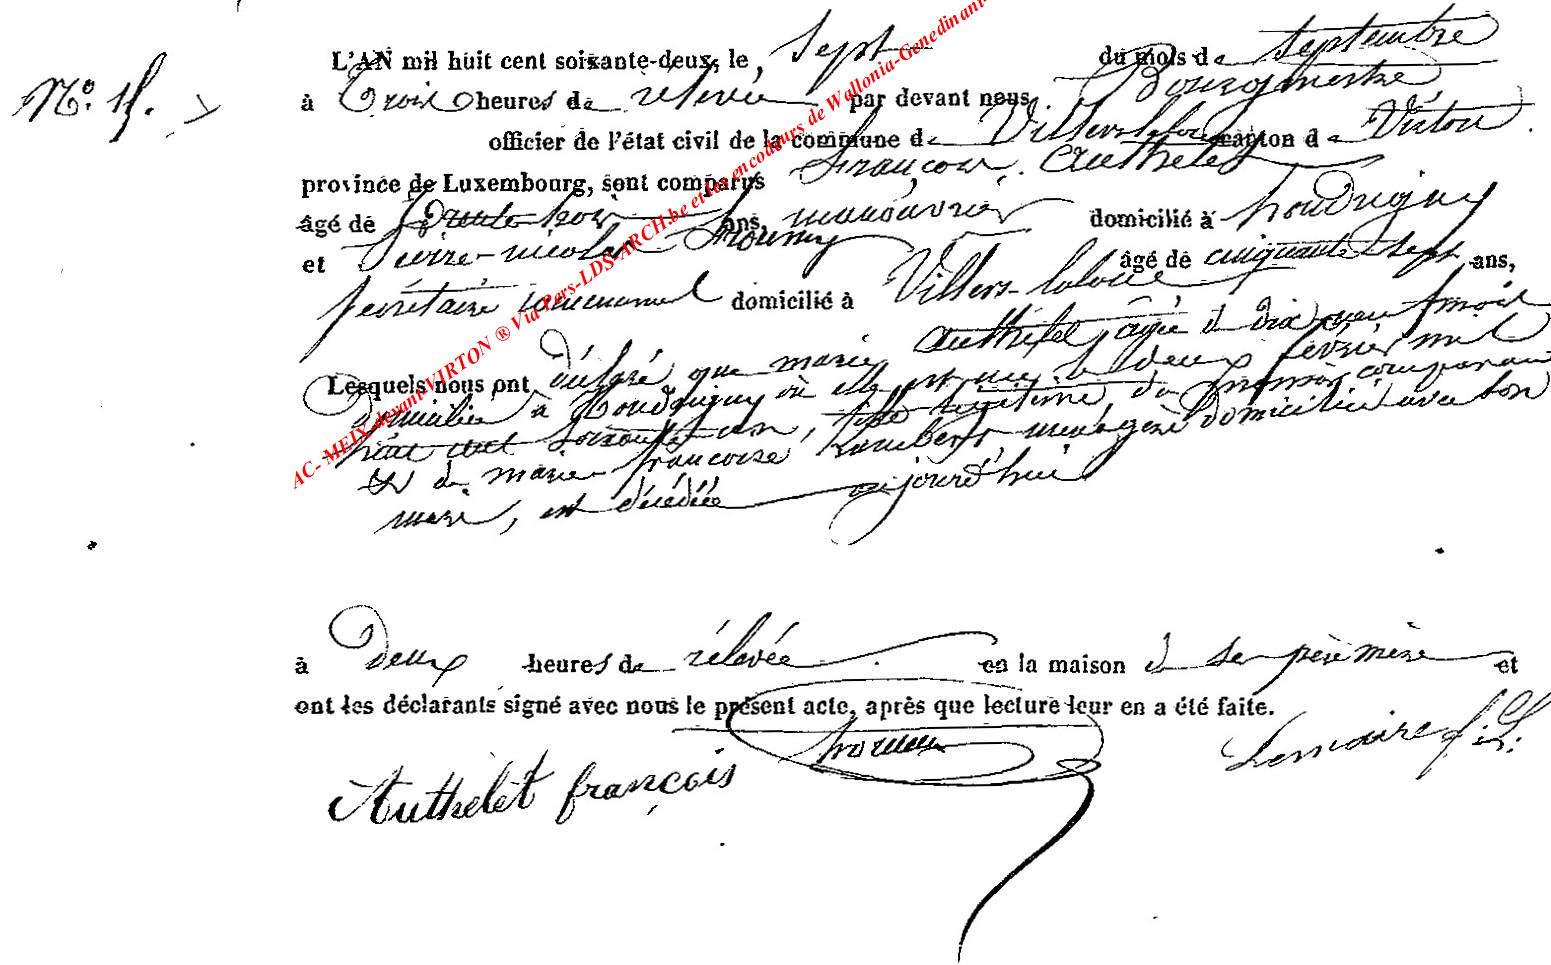 N.° 15.
L'AN mil huit cent soixante-deux, le sept du mois de septembre
à trois heures de rélevée par devant nous Bourgmestre
officier de l'état civil de la commune de Villers-laloue canton de Virton
province de Luxembourg, sont comparus François Authelet
âgé de trente trois ans, manouvrier domicilié à houdrigny
et Pierre-nicolas âgé de cinquante sept ans,
secrétaire communal domicilié à Villers-laloue
Lesquels nous ont déclaré que marie Authelet âgée de dix neuf mois
domiciliée à houdrigny où elle est née le deux février mil
huit cent soixante un, fille légitime du premier comparant
et de marie françoise Lambert ménagère domiciliée avec son
mari, est décédée aujourd'hui
à Deux heures de rélevée en la maison de ses père mère et
ont les déclarants signé avec nous le présent acte, après que lecture leur en a été faite.
Authelet françois Lemaire f.
AC- MEIX-devant-VIRTON ® Via Pers-LDS-ARCH.be et les encodeurs de Wallonia-Genedinant